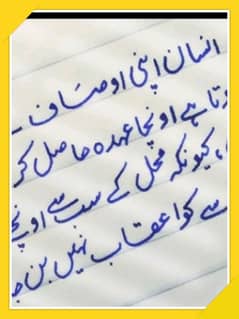 انسان اپنی اوصاف
ہوتا ہے اونچا عہدہ حاصل کر
، کیونکہ محل کے سب سے اونچے
سے کوا عقاب نہیں بن جا